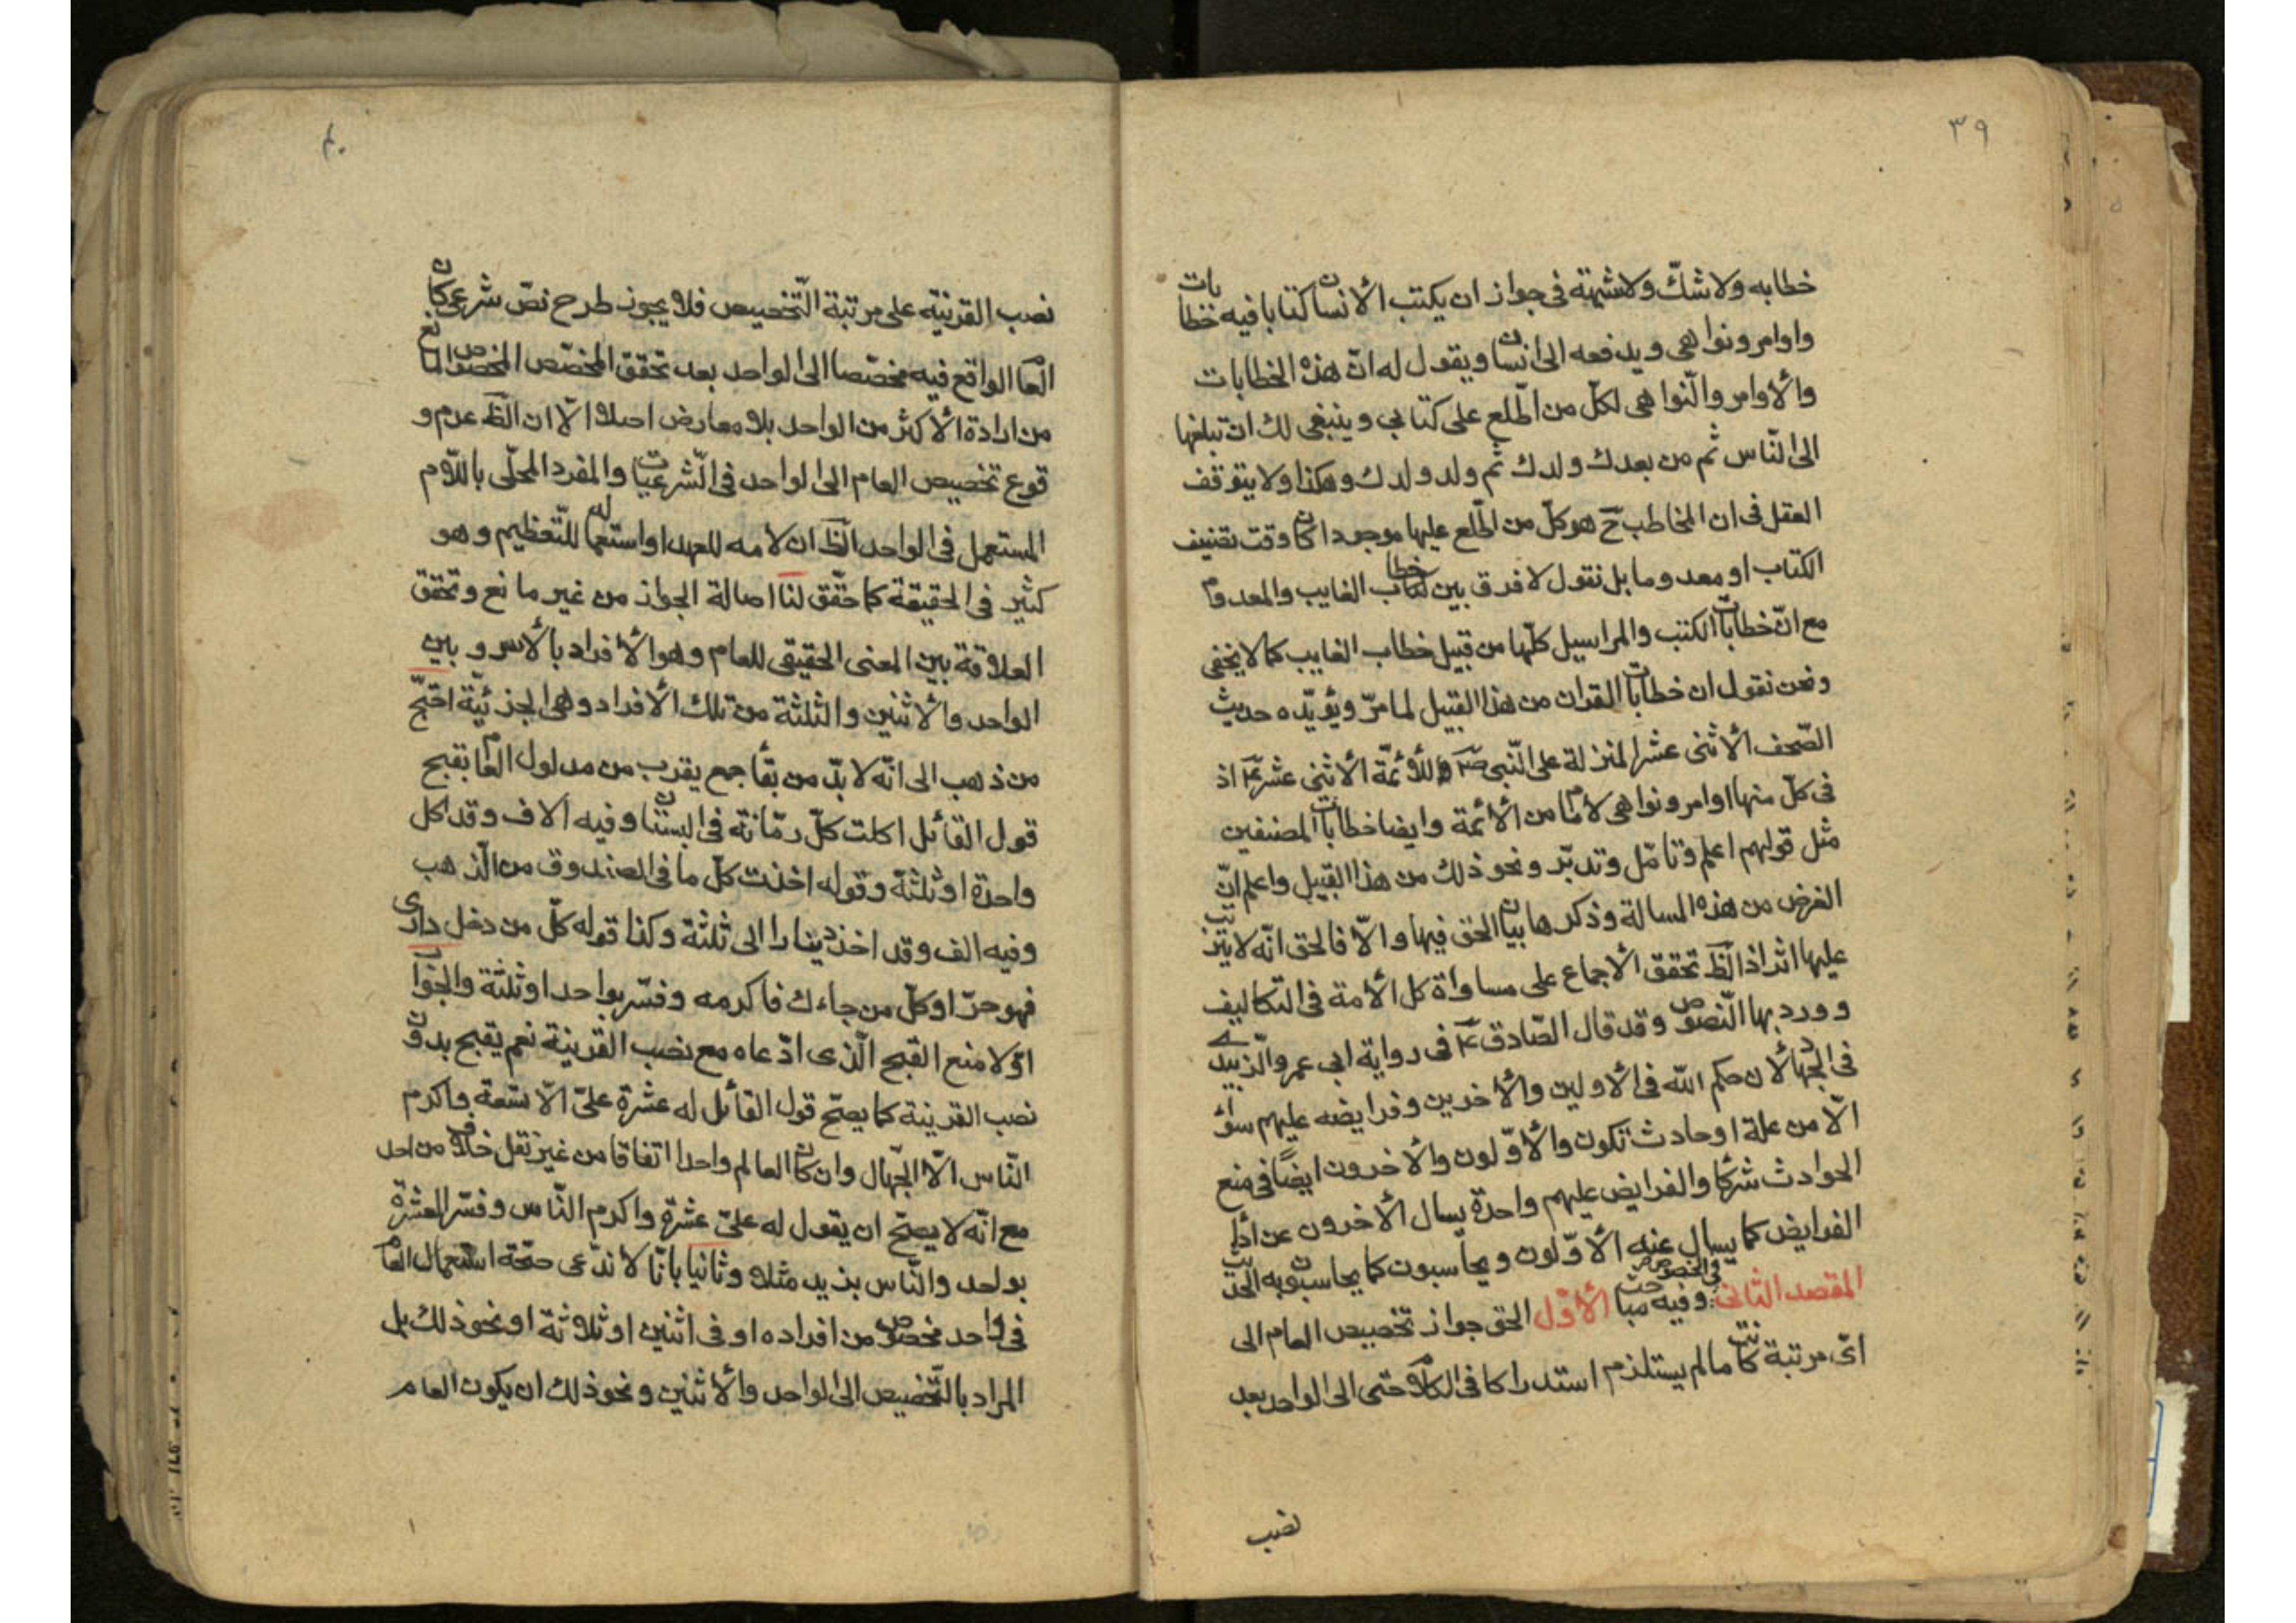 ٣٩
خطابه ولا شكّ ولا شبهة فى جواز ان يكتب الأنسان كتابا فيه خطابات
واوامر ونواهى ويدفعه الى انسان ويقول له انّ هذه الخطابات
والأوامر والنّواهى لكلّ من اطّلع على كتابي وينبغى لك ان تبلغها
الى النّاس ثم من بعدك ولدك ثم ولد ولدك وهكذا ولا يتوقف
العقل فى ان المخاطب ح هو كلّ من اطّلع عليها موجودا كان وقت تصنيف
الكتاب او معدوما بل نقول لا فرق بين خطاب الغايب والمعدوم
مع انّ خطابات الكتب والمراسيل كلّها من قبيل خطاب الغايب كما لا يخفى
ونحن نقول ان خطابات القران من هذا القبيل لما مرّ ويؤيّده حديث
الصّحف الأثنى عشر المنزلة على النّبى ص وللأئمّة الأثنى عشر ع اذ
فى كلّ منها اوامر ونواهى لأمام من الأئمة وايضا خطابات المصنفين
مثل قولهم اعلم وتامّل وتدبّر ونحو ذلك من هذا القبيل واعلم انّ
الغرض من هذه المسالة وذكرها بيان الحق فيها والّا فالحق انّه لا يترتب
عليها اثر اذ الظ تحقق الأجماع على مساواة كل الأمة فى التكاليف
وورد بها النّصوص وقد قال الصّادق ع فى رواية ابى عمرو الزبيدى
فى الجهاد لأن حكم اللّه فى الأولين والأخرين وفرايضه عليهم سواء
الّا من علة او حادث تكون والأوّلون والأخرون ايضًا فى منع
الحوادث شركاء والفرايض عليهم واحدة يسال الأخرون عن أداء
الفرايض كما يسال عنه الأوّلون ويحاسبون كما يحاسبون به الحديث
المقصد الثانى فى الخصوص وفيه مباحث الأوّل الحق جواز تخصيص العام الى
اىّ مرتبة كانت ما لم يستلزم استدراكا فى الكلام حتى الى الواحد بعد
نصب
٤٠
نصب القرينة على مرتبة التّخصيص فلا يجوز طرح نصّ شرعى كان
العام الواقع فيه مخصّصا الى الواحد بعد تحقق المخصّص المخصوص المانع
من ارادة الأكثر من الواحد بلا معارض اصلا الّا ان الظ عدم و
قوع تخصيص العام الى الواحد فى الشّرعيات والمفرد المحلّى باللّام
المستعمل فى الواحد الظ ان لامه للعهد او استعماله للتّعظيم وهو
كثير فى الحقيقة كما حقّق لنا اصالة الجواز من غير مانع وتحقق
العلاقة بين المعنى الحقيقى للعام وهو الأفراد بالأسر وبين
الواحد والأثنين والثلثة من تلك الأفراد وهى الجزئيّة احتجّ
من ذهب الى انّه لا بدّ من بقاء جمع يقرب من مدلول العام بقبح
قول القائل اكلت كلّ رمّانة فى البستان وفيه الاف وقد اكل
واحدة او ثلثة وقوله اخذت كلّ ما فى الصندوق من الذّهب
وفيه الف وقد اخذ دينارا الى ثلثة وكذا قوله كلّ من دخل دارى
فهو حرّ او كلّ من جاءك فاكرمه وفسّر بواحد او ثلثة والجواب
اوّلا منع القبح الّذى ادّعاه مع نصب القرينة نعم يقبح بدون
نصب القرينة كما يصحّ قول القائل له عشرة علىّ الّا تسعة واكرم
النّاس الّا الجهّال وان كان العالم واحدا اتفاقا من غير نقل خلاف من احد
مع انّه لا يصحّ ان يقول له علىّ عشرة واكرم النّاس وفسّر العشرة
بواحد والنّاس بزيد مثلا وثانيا بانّا لا ندّعى صحّة استعمال العام
فى واحد مخصوص من افراده او فى اثنين او ثلاثة او نحو ذلك بل
المراد بالتّخصيص الى الواحد والأثنين ونحو ذلك ان يكون العام